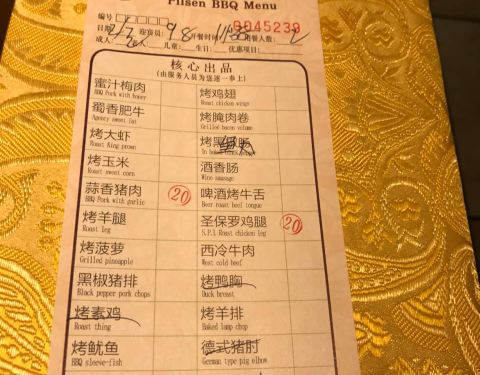 Pilsen BBQ Menu
编号
0045239
日期 迎宾员: 98 开餐时间: 用餐人数: 2
成人: 儿童: 生日: 优惠项目:
核心出品
(由服务人员为您逐一奉上)
蜜汁梅肉 烤鸡翅
BBQ Pork with honey Roast chicken wings
蜀香肥牛 烤腌肉卷
Agency sweet fat Grilled bacon volume
烤大虾 烤黑
Roast King prawn
烤玉米 酒香肠
Roast sweet corn Wine sausage
蒜香猪肉 20 啤酒烤牛舌
BBQ Pork with garlic Beer roast beef tongue
烤羊腿 圣保罗鸡腿 20
Roast leg S.P.L Roast chicken leg
烤菠萝 西冷牛肉
Roast pineapple West cold beef
黑椒猪排 烤鸭胸
Black pepper pork chops Duck breast
烤素鸡 烤羊排
Roast thing Baked lamp chop
烤鱿鱼 德式猪肘
BBQ sleeve-fish German type pig elbow